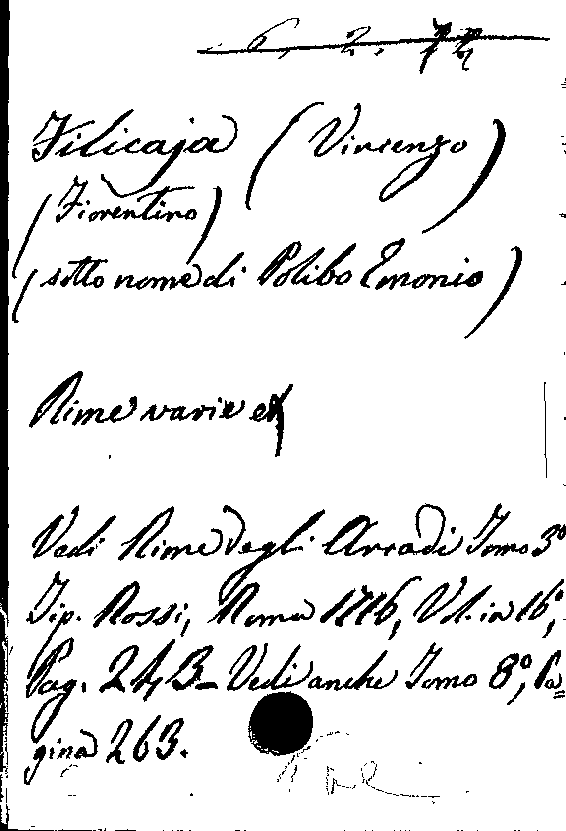 6. 2. 72
Filicaja (Vincenzo)
(Fiorentino)
(sotto nome di Polibo Emonio)
Rime varie
Vedi Rime degli Arcadi Tomo 3º
Tip. Rossi, Roma 1716, Vol. in 16º,
Pag. 243_ Vedi anche Tomo 8º, Pa=
gina 263.